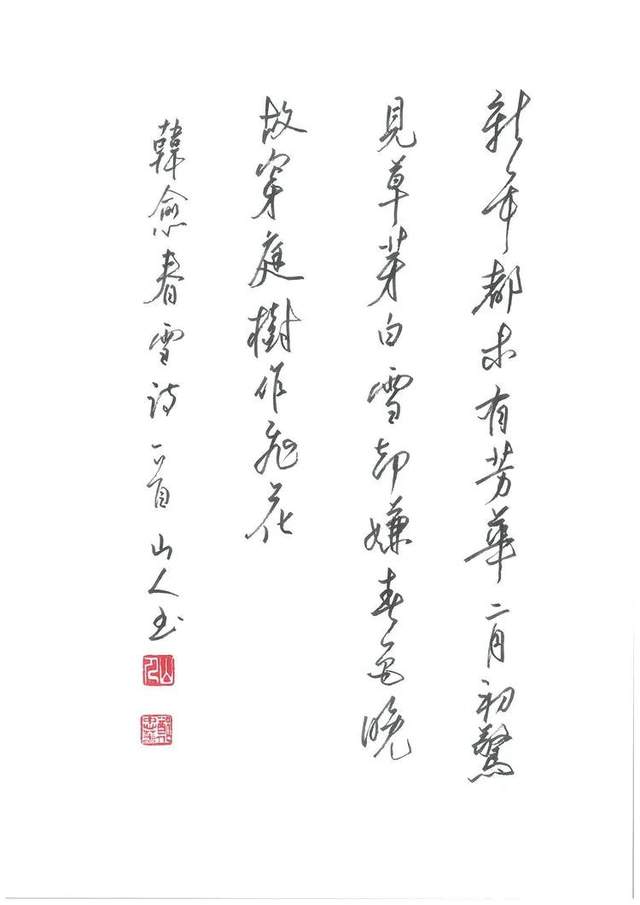 新年都未有芳華二月初驚
見草芽白雪却嫌春色晚
故穿庭樹作飛花
韓愈春雪詩一首 山人书